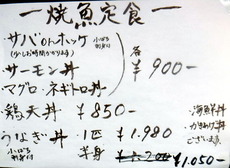 一焼魚定食一
サバorホッケ 小ばち 刺身付
(少しお時間かかります)
サーモン丼
マグロ・ネギトロ丼
各 ¥900-
鶏天丼 ¥850-
うなぎ丼 1匹 ¥1.980
小ばち 刺身付 半身 ¥1.200
¥1.050-
海鮮丼
かきあげ丼
ございます。